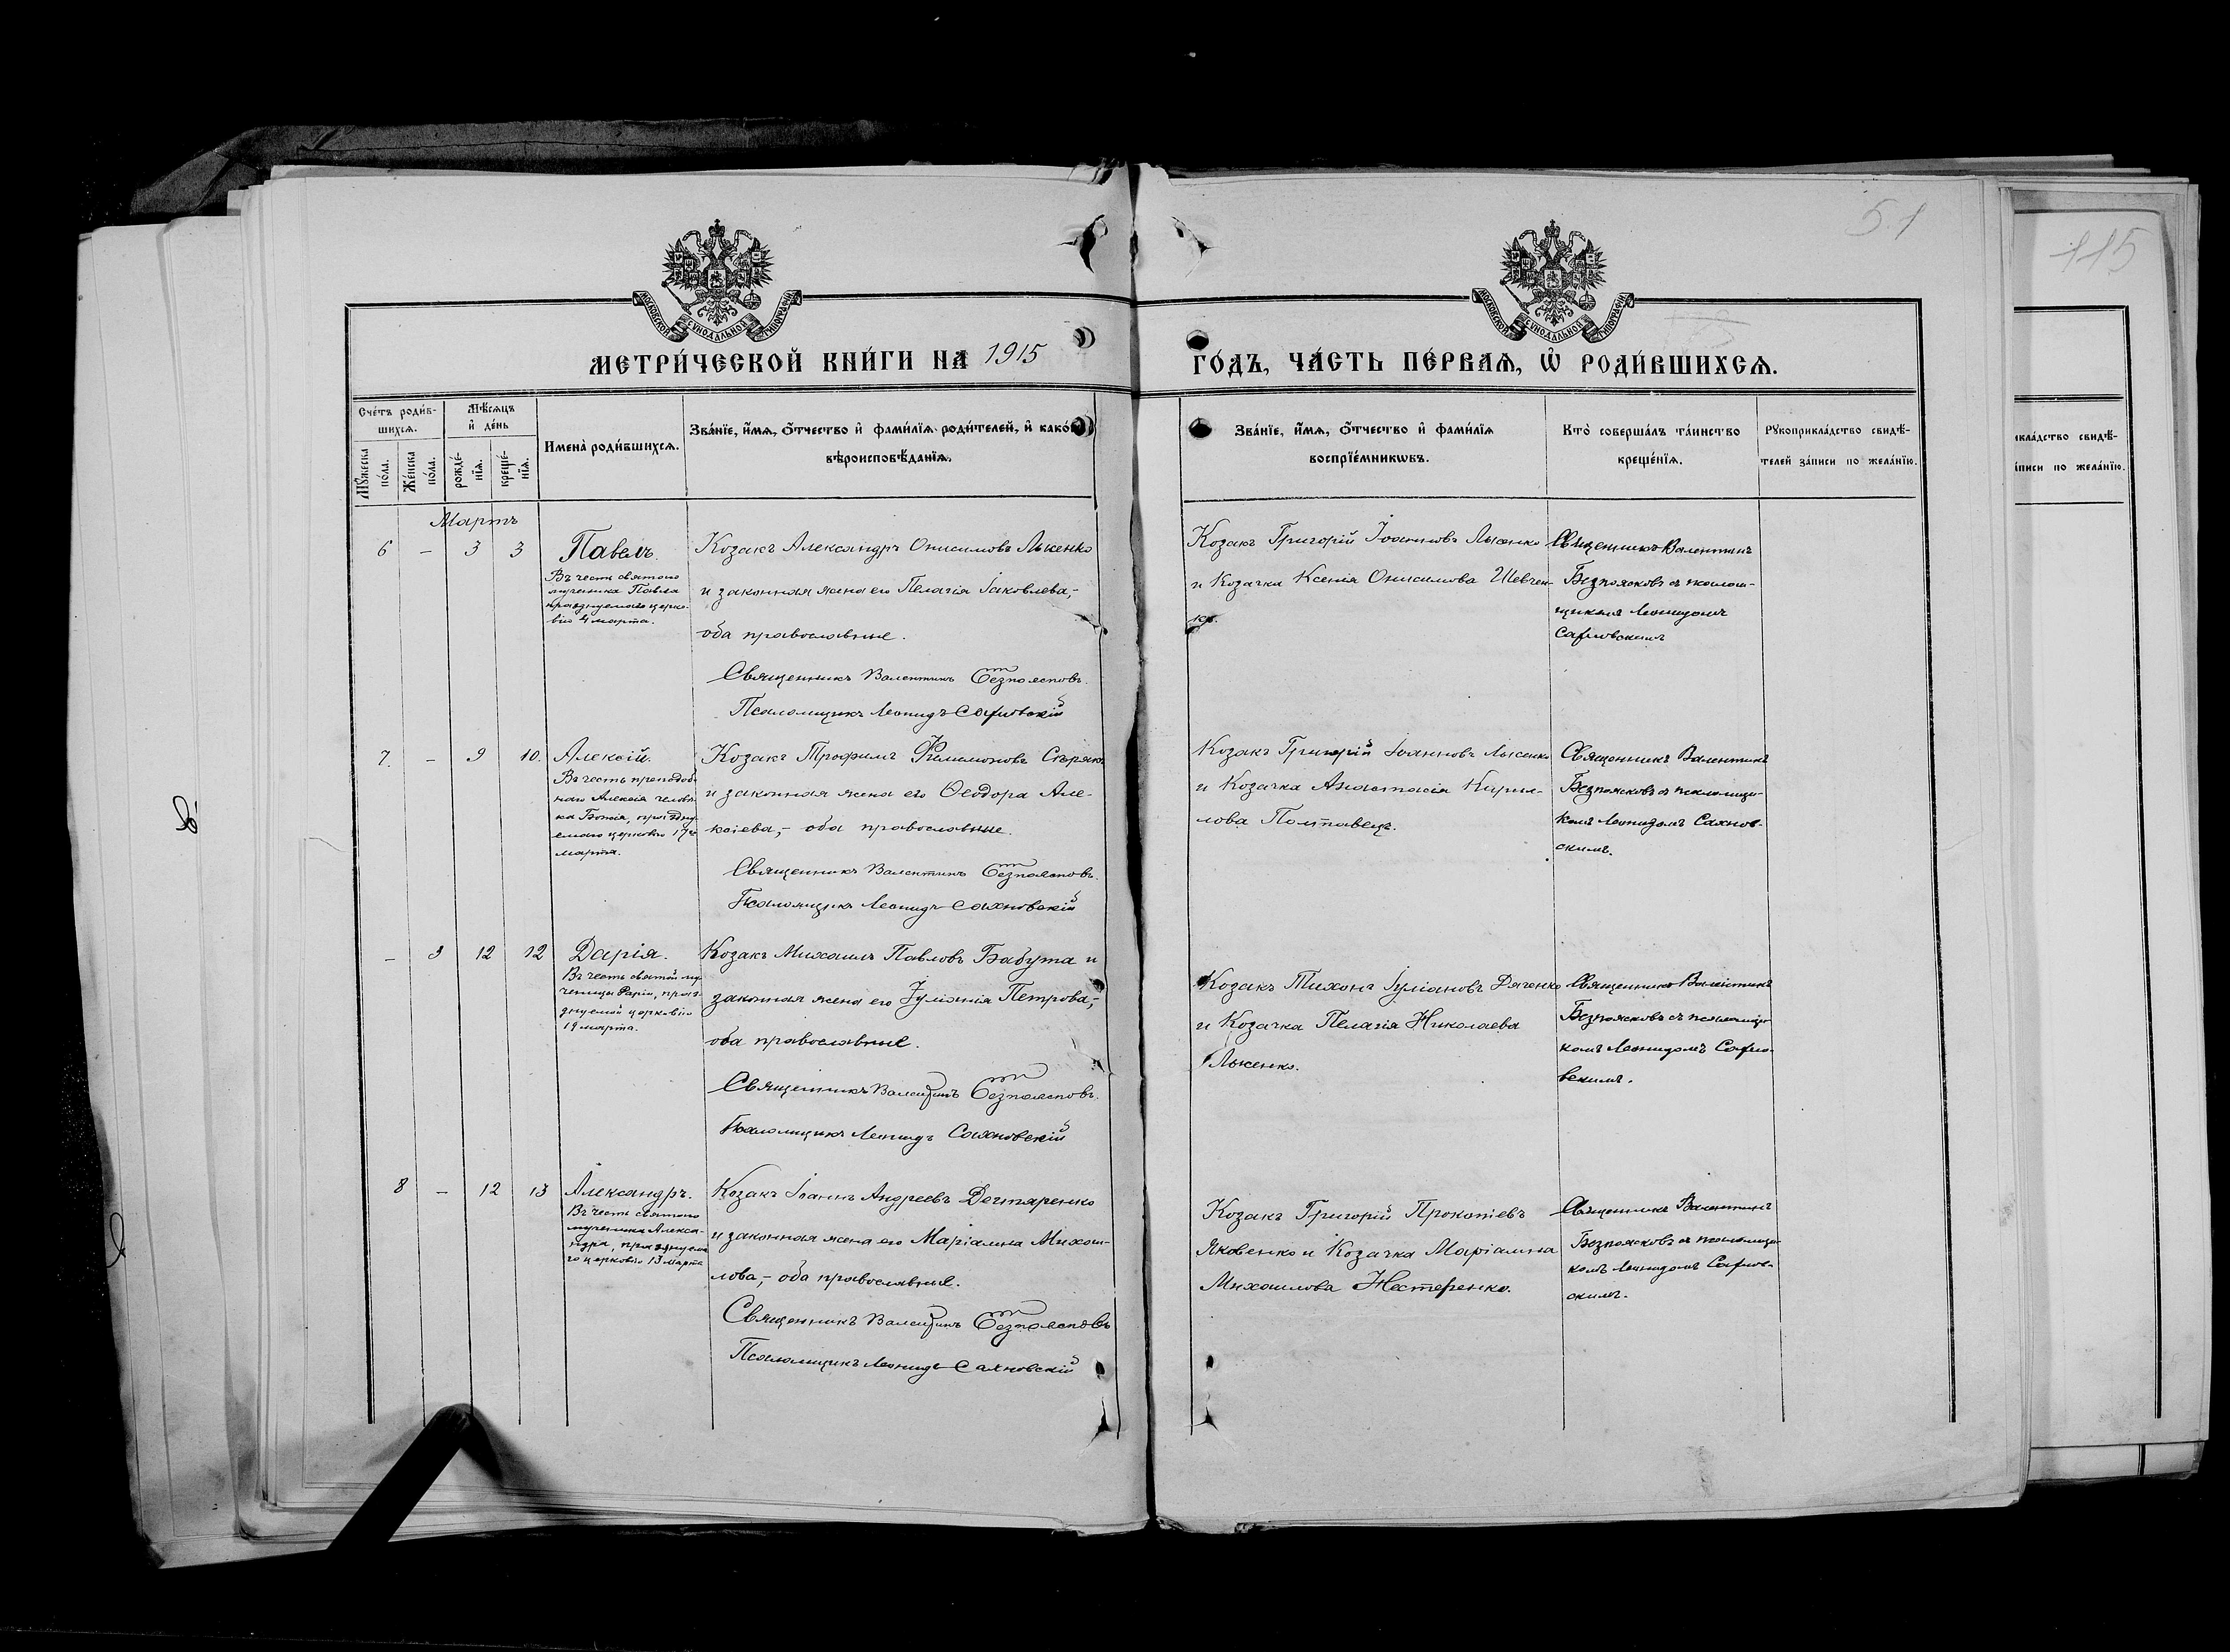 51
115
МОСКОВСКОЙ СѴНОДАЛЬНОЙ ТИПОГРАФІИ
МОСКОВСКОЙ СѴНОДАЛЬНОЙ ТИПОГРАФІИ
МЕТРИ́ЧЕСКОЙ КНИ́ГИ НА 1915
ГО́ДЪ, ЧА́СТЬ ПЕ́РВАЯ, Ѡ҆ РОДИ́ВШИХСЯ.
Сче́тъ роди́в-
шихся.
Мѣ́сяцъ
и҆ де́нь
Мꙋ́жеска
по́ла.
Же́нска
по́ла.
рожде́-
нїя.
креще́-
нїя.
Имена̀ роди́вшихся.
Зва́нїе, и҆́мя, ѻ҆́тчество и҆ фами́лїя роди́телей, и҆ како́гѡ
вѣроисповѣ́данїя.
Зва́нїе, и҆́мя, ѻ҆́тчество и҆ фами́лїя
воспрїе́мникѡвъ.
Кто̀ соверша́лъ та́инство
креще́нїя.
Рꙋкоприкла́дство свидѣ́-
телей за́писи по жела́нїю.
икла́дство свидѣ́-
а́писи по жела́нїю.
Мартъ
6 – 3 3
Павелъ.
Въ честь святого
мученика Павла
празднуемаго церко-
вію 4 марта.
Козакъ Александръ Онисимовъ Лысенко
и законная жена его Пелагія Іаковлева,-
оба православные.
Священникъ Валентинъ Безпоясновъ.
Псаломщикъ Леонидъ Сахновскій
Козакъ Григорій Іоанновъ Лысенко
и Козачка Ксенія Онисимова Шевчен-
ко.
Священникъ Валентинъ
Безпоясковъ съ псалом-
щикомъ Леонидомъ
Сахновскимъ
7. – 9 10.
Алексій.
Въ честь преподоб-
наго Алексія человѣ-
ка Божія, праздну-
емаго церковію 17го
марта.
Козакъ Трофимъ Филимоновъ Сѣрякъ
и законная жена его Ѳеодора Але-
ксіева,- оба православные.
Священникъ Валентинъ Безпоясновъ.
Псаломщикъ Леонидъ Сахновскій
Козакъ Григорій Іоанновъ Лысенко
и Козачка Анастасія Кирил-
лова Полтавецъ.
Священникъ Валентинъ
Безпоясковъ съ псаломщи-
комъ Леонидомъ Сахнов-
скимъ.
– 3 12 12
Дарія.
Въ честь святой му-
ченицы Даріи, праз-
днуемой церковію
19 марта.
Козакъ Михаилъ Павловъ Бабута и
законная жена его Іуліанія Петрова,-
оба православные.
Священникъ Валентинъ Безпоясновъ.
Псаломщикъ Леонидъ Сахновскій
Козакъ Тихонъ Іуліановъ Дяченко
и Козачка Пелагія Николаева
Лысенко.
Священникъ Валентинъ
Безпоясковъ съ псаломщи-
комъ Леонидомъ Сахно-
вскимъ.
8 – 12 13
Александръ.
Въ честь святого
мученика Алекса-
ндра, празднуема-
го церковію 13 марта
Козакъ Іоаннъ Андреевъ Дегтяренко
и законная жена его Маріамна Михаи-
лова,- оба православные.
Священникъ Валентинъ Безпоясновъ
Псаломщикъ Леонидъ Сахновскій
Козакъ Григорій Прокопіевъ
Яковенко и Козачка Маріамна
Михаилова Нестеренко.
Священникъ Валентинъ
Безпоясковъ съ псаломщи-
комъ Леонидомъ Сахнов-
скимъ.